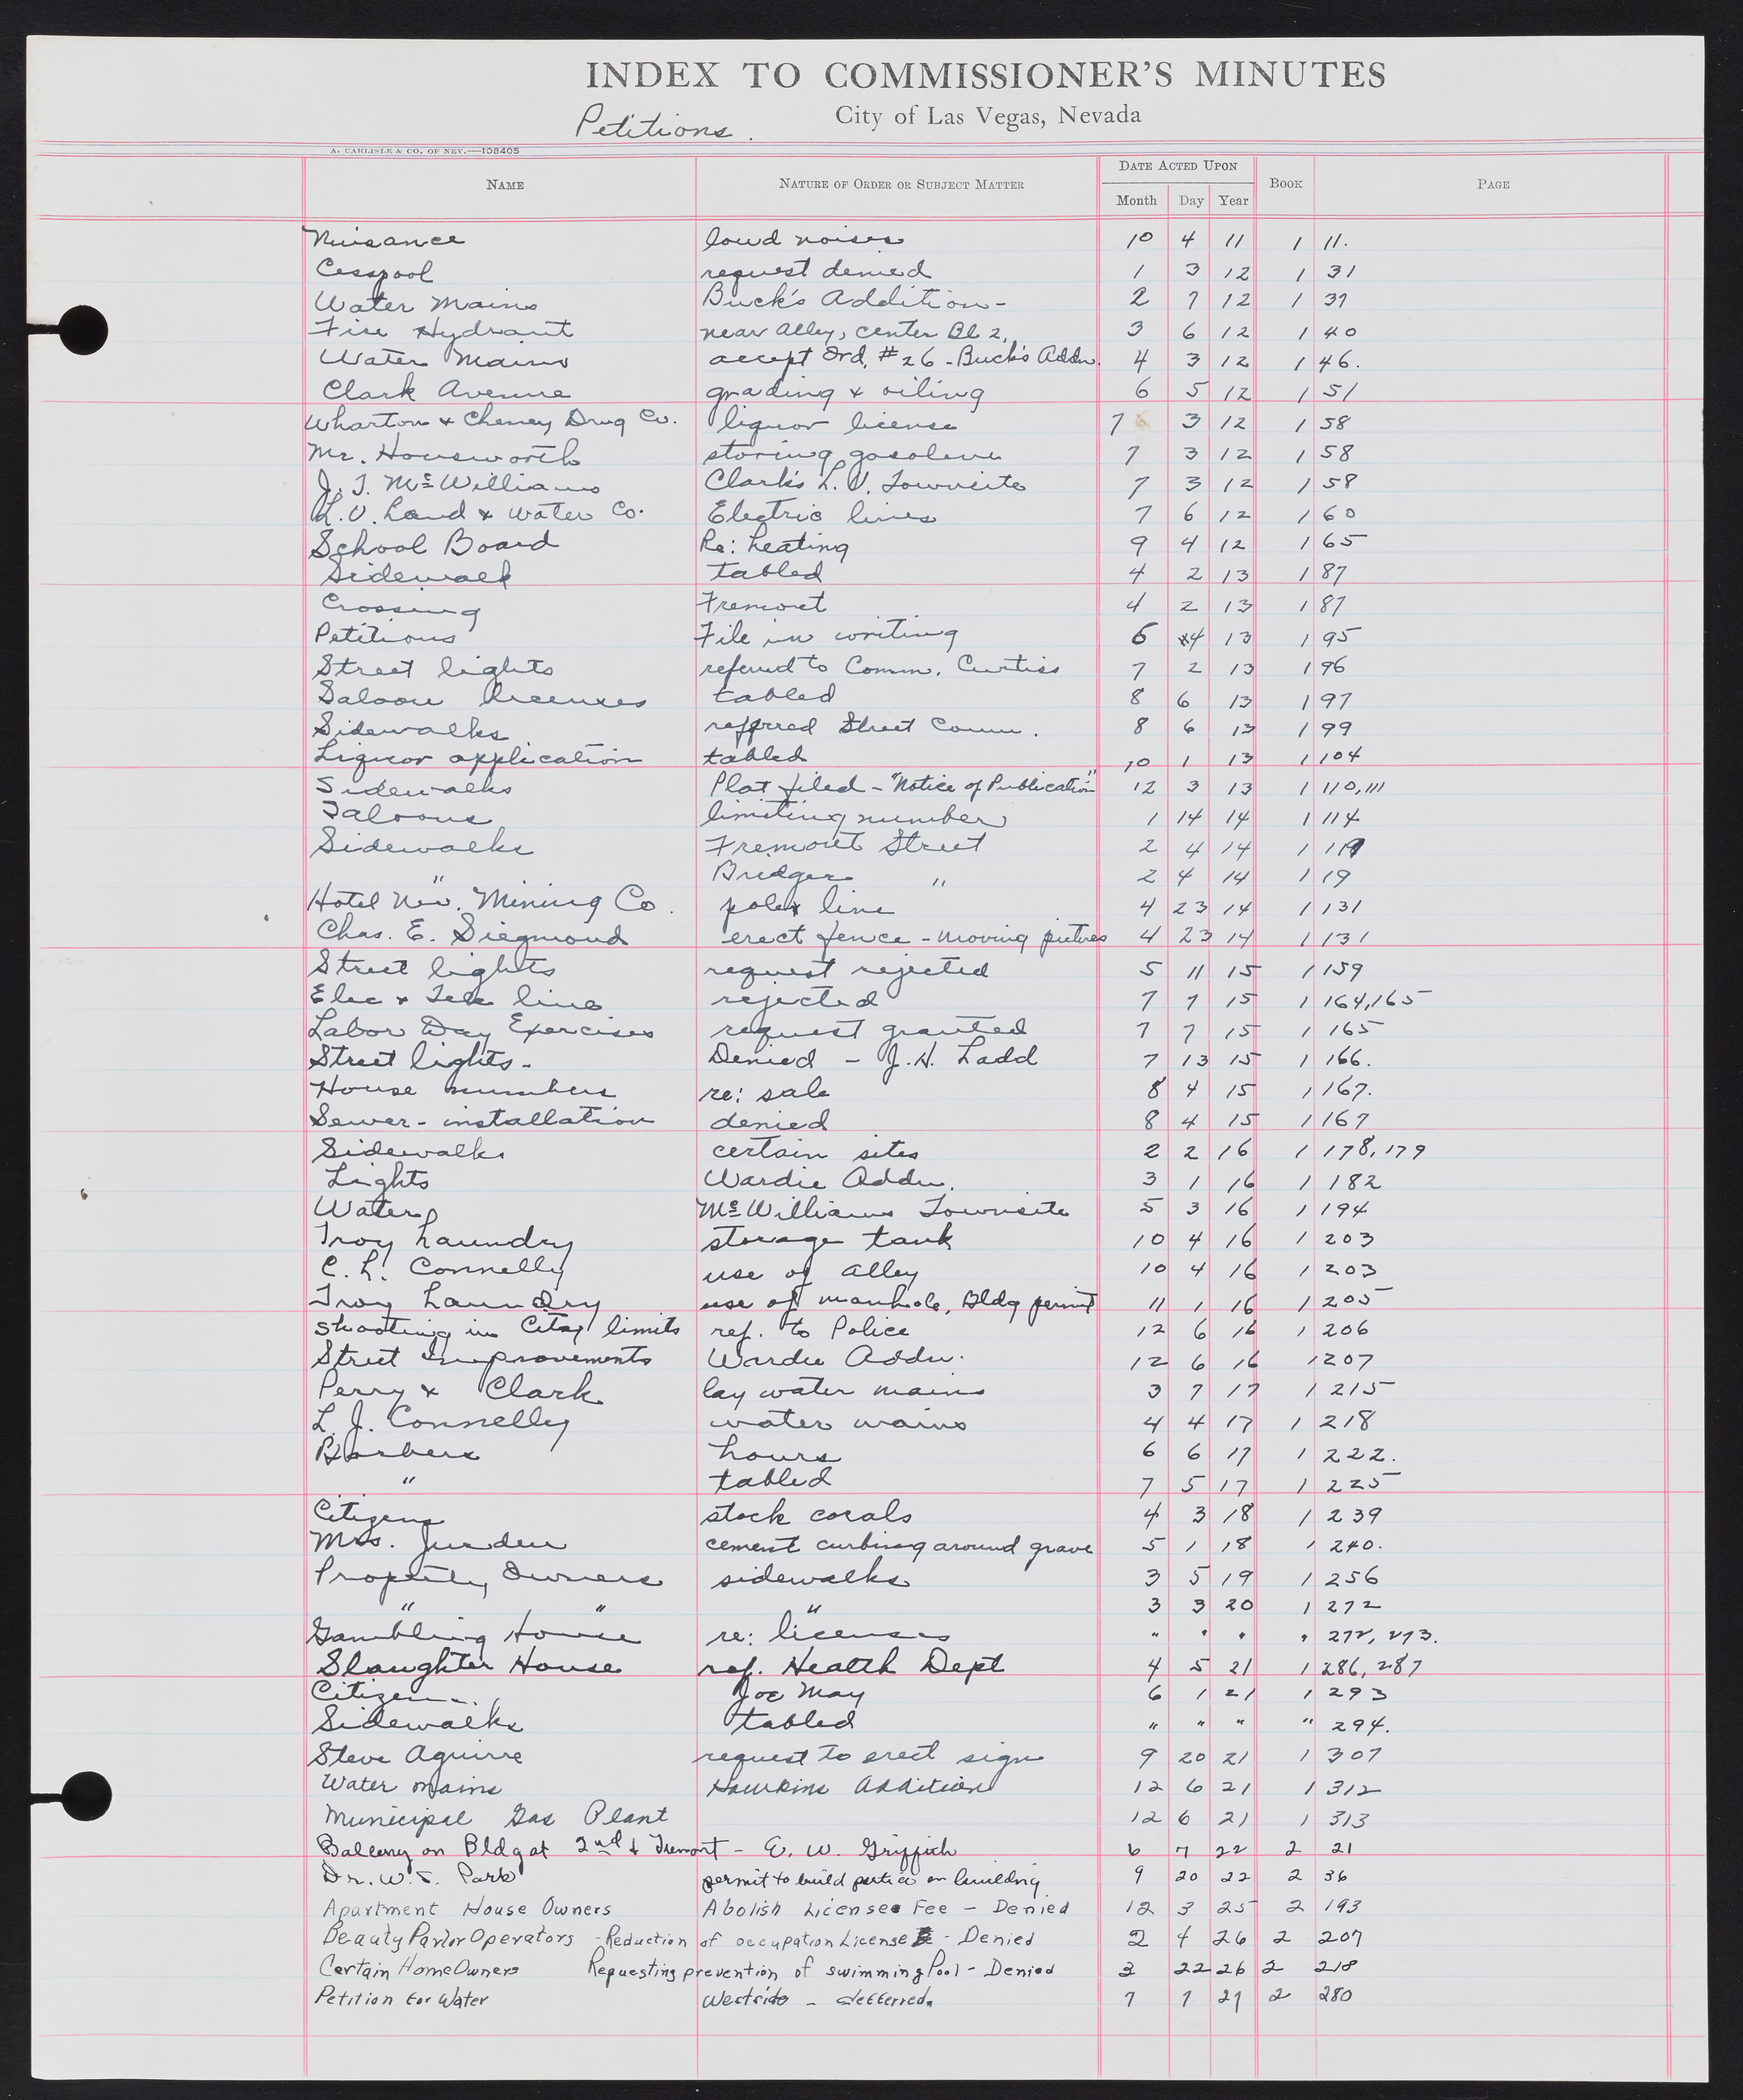 INDEX TO COMMISSIONER'S MINUTES
Petitions. City of Las Vegas, Nevada
A. CARLISLE & CO. OF NEV.—108405
NAME NATURE OF ORDER OR SUBJECT MATTER DATE ACTED UPON BOOK PAGE
Month Day Year
Nuisance loud noises 10 4 11 1 11.
Cesspool request denied 1 3 12 1 31
Water Mains Buck's Addition- 2 7 12 1 37
Fire Hydrant near alley, center Bl 2, 3 6 12 1 40
Water Mains accept Ord. #26 - Buck's Addn. 4 3 12 1 46.
Clark Avenue grading & oiling 6 5 12 1 51
Wharton & Cheney Drug Co. liquor license 7 3 12 1 58
Mr. Housworth storing gasolene 7 3 12 1 58
J. T. McWilliams Clark's L.V. Townsite 7 3 12 1 58
L.V. Land & Water Co. Electric lines 7 6 12 1 60
School Board Re: heating 9 4 12 1 65
Sidewalk tabled 4 2 13 1 87
Crossing Fremont 4 2 13 1 87
Petitions File in writing 6 4 13 1 95
Street lights referred to Comm. Curtiss 7 2 13 1 96
Saloon licenses tabled 8 6 13 1 97
Sidewalks referred Street Comm. 8 6 13 1 99
Liquor application tabled 10 1 13 1 104
Sidewalks Plat filed - "Notice of Publication" 12 3 13 1 110, 111
Saloons limiting number 1 14 14 1 114
Sidewalks Fremont Street 2 4 14 1 119
" Bridger " 2 4 14 1 119
Hotel Nev. Mining Co. pole line 4 23 14 1 131
Chas. E. Siegmond erect fence - moving pictures 4 23 14 1 131
Street lights request rejected 5 11 15 1 159
Elec & Tele line rejected 7 7 15 1 164,165
Labor Day Exercises request granted 7 7 15 1 165
Street lights - Denied - J.H. Ladd 7 13 15 1 166.
House numbers re: sale 8 4 15 1 167.
Sewer - installation denied 8 4 15 1 167
Sidewalks certain sites 2 2 16 1 178, 179
Lights Wardie Addn. 3 1 16 1 182
Water McWilliams Townsite 5 3 16 1 194
Troy Laundry storage tank 10 4 16 1 203
C. L. Connelly use of alley 10 4 16 1 203
Troy Laundry use of manhole, Bldg permit 11 1 16 1 205
Shooting in City limits ref. to Police 12 6 16 1 206
Street Improvements Wardie Addn. 12 6 16 1 207
Perry & Clark lay water mains 3 7 17 1 215
L. J. Connelly water mains 4 4 17 1 218
Barbers hours 6 6 17 1 222.
" tabled 7 5 17 1 225
Citizens stock corals 4 3 18 1 239
Mrs. Jurden cement curbing around grave 5 1 18 1 240.
Property Owners sidewalks 3 5 19 1 256
" " " 3 3 20 1 272
Gambling House re: licenses " " " " 272, 273.
Slaughter House ref. Health Dept 4 5 21 1 286, 287
Citizens Joe May 6 1 21 1 293
Sidewalks tabled " " " " 294.
Steve Aguirre request to erect sign 9 20 21 1 307
Water mains Hawkins Addition 12 6 21 1 312
Municipal Gas Plant 12 6 21 1 313
Balcony on Bldg at 2nd & Fremont - E. W. Griffith 6 7 22 2 21
Dr. W. S. Park permit to build portico on building 9 20 22 2 36
Apartment House Owners Abolish License Fee - Denied 12 3 25 2 193
Beauty Parlor Operators - Reduction of occupation License - Denied 2 4 26 2 207
Certain Home Owners Requesting prevention of swimming Pool - Denied 3 22 26 2 218
Petition for Water Westside - deferred. 7 7 27 2 280